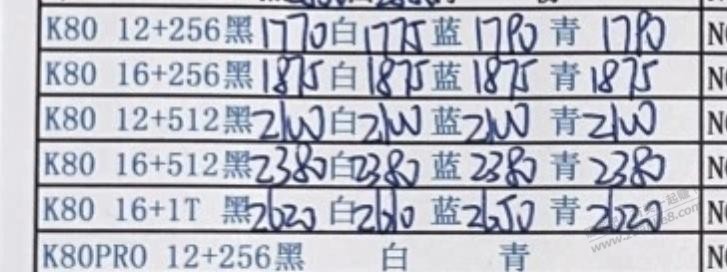 K80 12+256黑1770白1775蓝1790青1790
K80 16+256黑1875白1875蓝1875青1875 N
K80 12+512黑2100白2100蓝2100青2100 N
K80 16+512黑2380白2380蓝2380青2380 N
K80 16+1T 黑2620白2610蓝2650青2620 N
K80PRO 12+256黑 白 青 N